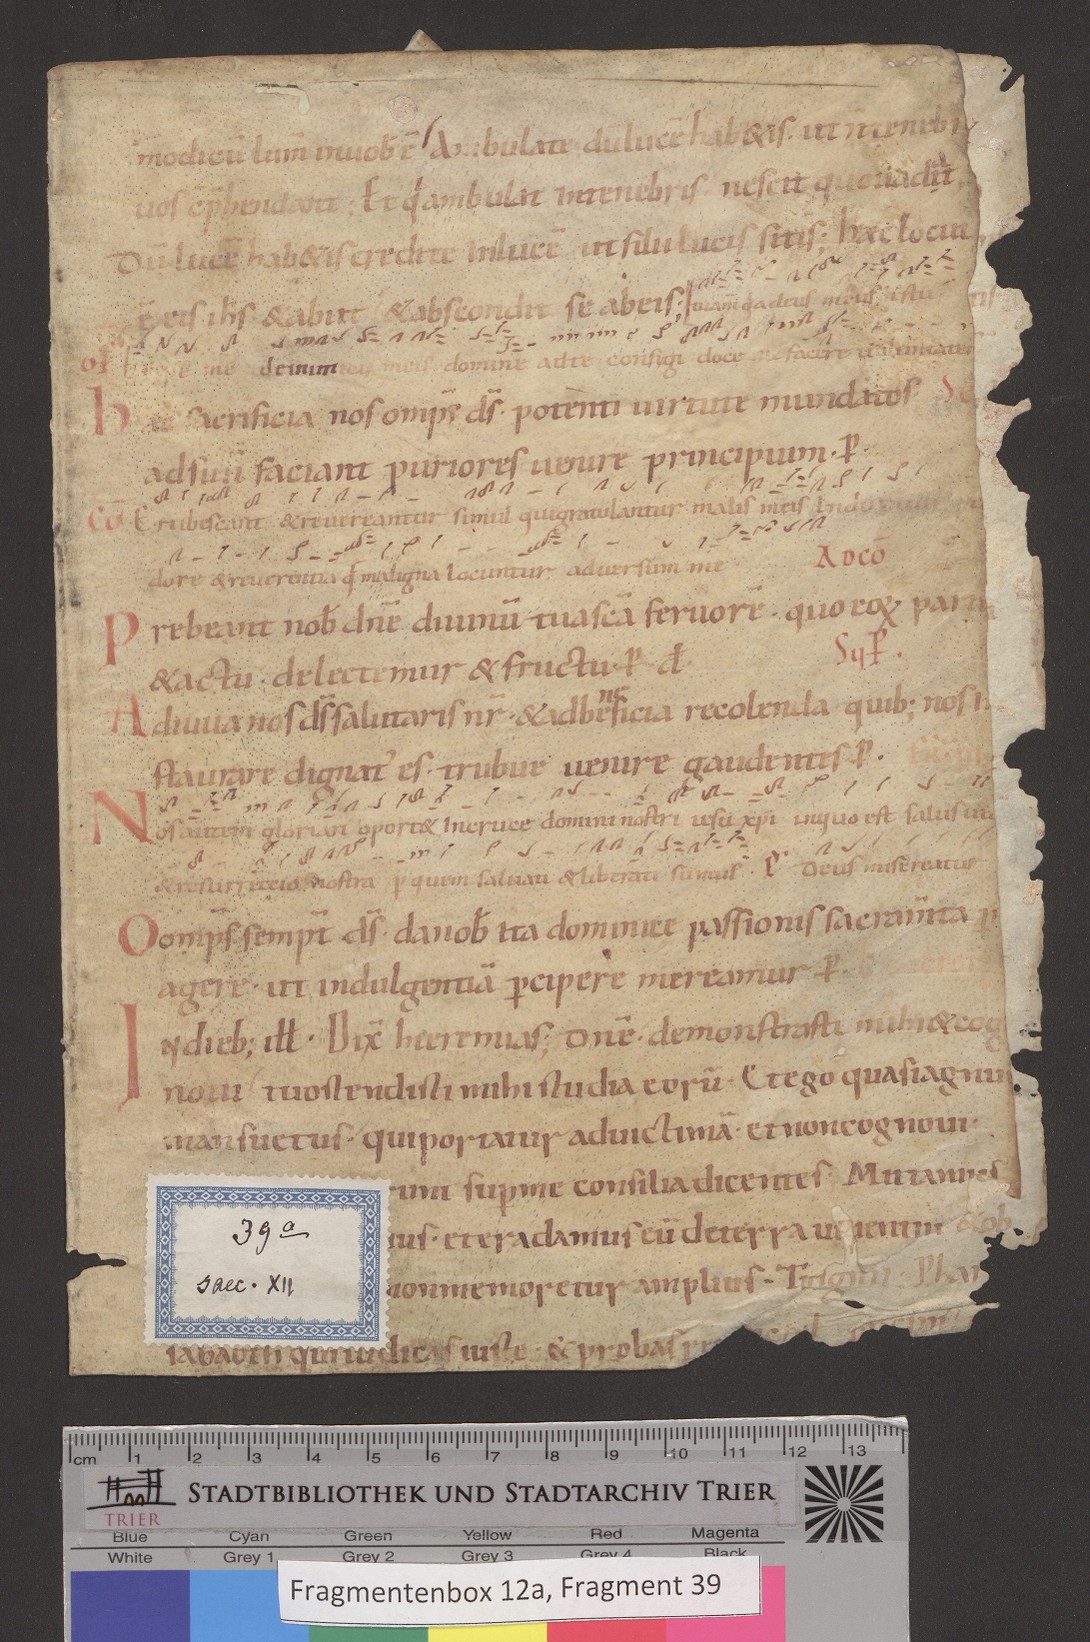 modicū lum̄ inuob̄ ē Ambulate dūlucē hab&is. ut ñ tenebre
uos c̄p̄hendant. Et q̇ ambulat intenebris nescit quo uadit
Dū lucē hab&is credite inlucē ut filii lucis sitis; hæc locut
ē eis ih̄s &abiit &abscondit se abeis; quam ds̄
of me deinimicis meis domine adte confugi doce me facere uoluntatem
haec sacrificia nos omp̄s ds̄. potenti uirtute mundatos
adsuū faciant puriores uenire principium. P̄.
cō Erubescant &reuereantur simul quigratulantur malis meis Induantur
dore &reuerentia q̄ maligna locuntur aduersum me
AD cō
Prebeant nob̄ dn̄e diuinū tua scā feruorē. quo eoꝝ
&actu. delectemur &fructu. P̄. d̄
Sup P̄.
Adiuua nos ds̄ salutaris nr̄. &adbeneficia recolenda quib; nos in
staurare dignat' es. tribue uenire gaudentes. P̄.
Nosautem gloriari oport& Incruce domini nostri iesu xp̄i inquo est salus uita
&resurrectio nostra p̄ quem saluati &liberati sumus. P̄ Deus misereatur
Oomp̄s semp̄t ds̄. danob̄ ita dominice passionis sacram̄ta p
agere. ut indulgentiā p̄cipere mereamur. P̄.
Indieb; ill̄. Dix̄ hieremias; Dn̄e. demonstrasti mihi &cog
noui tu ostendisti mihi studia eorū. Et ego quasi agnus
mansuetus. quiportatur aduictimā. et noncognoui.
runt sup̄me consilia dicentes Mittamus
ius. et eradamus eū deterra uiuentiū
nonmemoretur amplius.
sabaoth qui iudicas iuste. &probas
39a
saec. XII
cm 1 2 3 4 5 6 7 8 9 10 11 12 13
TRIER
STADTBIBLIOTHEK UND STADTARCHIV TRIER
Blue Cyan Green Yellow Red Magenta
White Grey 1 Grey 2 Grey 3 Grey 4 Black
Fragmentenbox 12a, Fragment 39